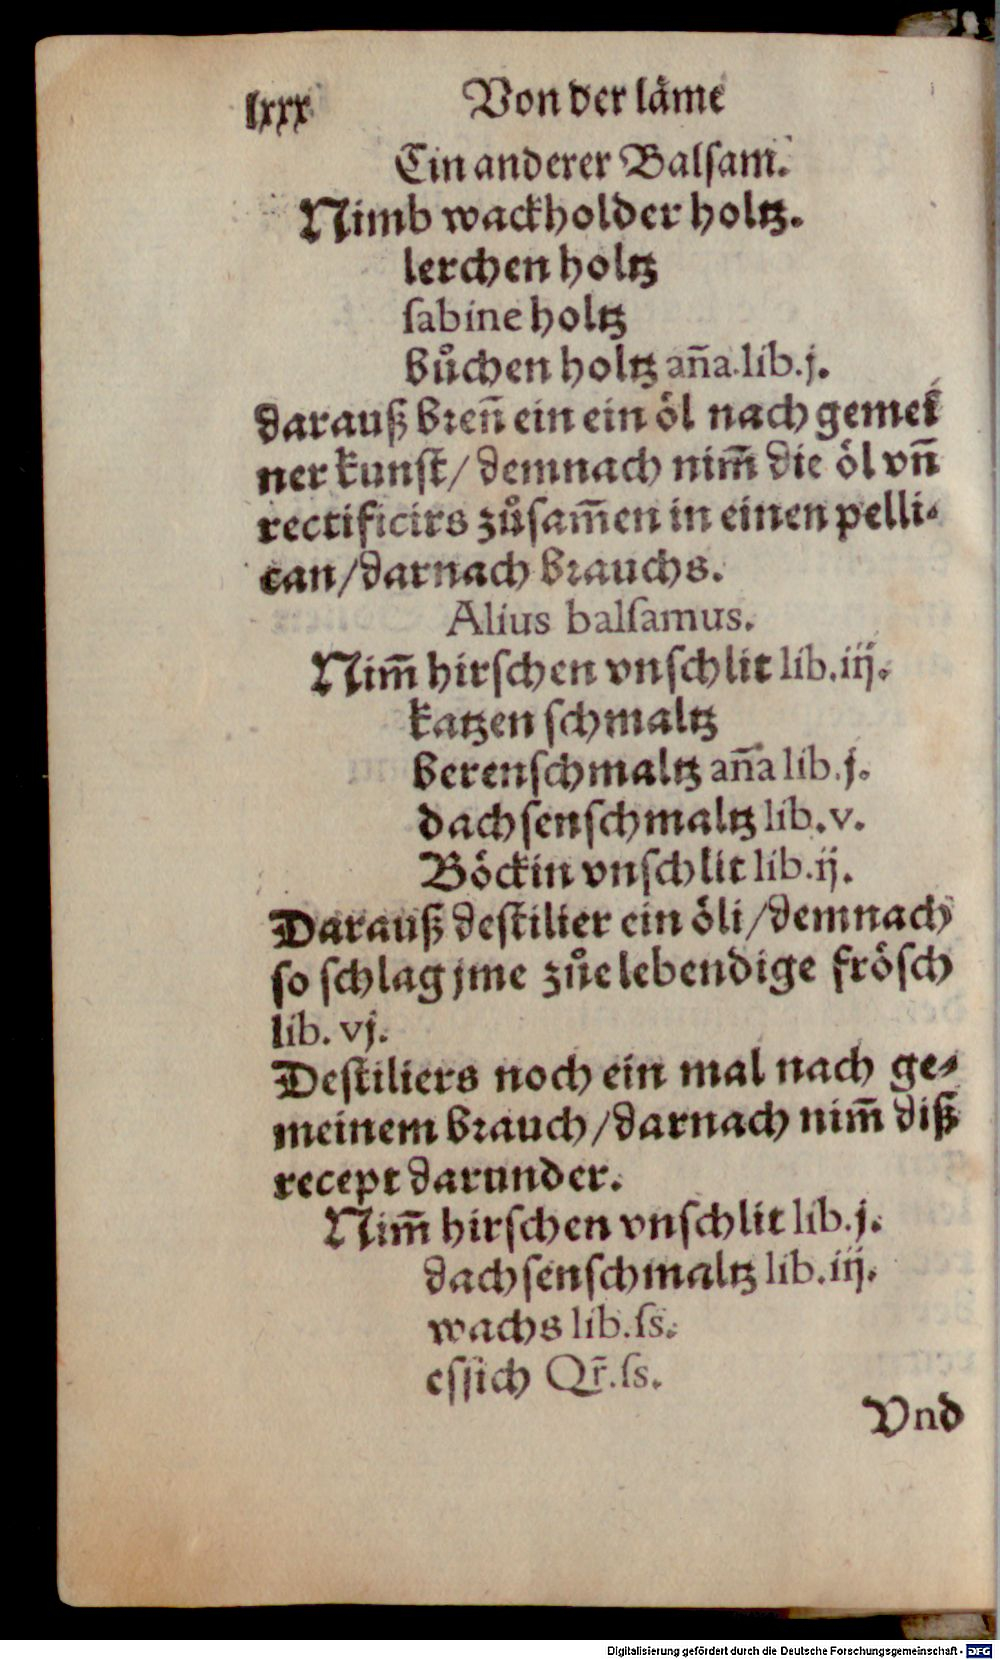 lxxx Von der låme
Ein anderer Balſam.
Nimb wackholder holtz.
lerchen holtz
ſabine holtz
bůchen holtz an̄a.lib.j.
darauß bꝛen̄ ein ein öl nach gemei
ner kunſt/ demnach nim̄ die öl vn̄
rectificirs zůſam̄en in einen pelli⸗
can/darnach bꝛauchs.
Alius balſamus.
Nim̄ hirſchen vnſchlit lib.iij.
katzen ſchmaltz
berenſchmaltz an̄a lib.j.
dachſenſchmaltz lib.v.
Böckin vnſchlit lib.ij.
Darauß deſtilier ein öli/demnach
ſo ſchlag jme zůe lebendige fröſch
lib. vj.
Deſtiliers noch ein mal nach ge⸗
meinem bꝛauch/darnach nim̄ diß
recept darunder.
Nim̄ hirſchen vnſchlit lib.j.
dachſenſchmaltz lib.iij.
wachs lib.ſs.
eſſich Qr̄.ſs.
Vnd
Digitalisierung gefördert durch die Deutsche Forschungsgemeinschaft - DFG